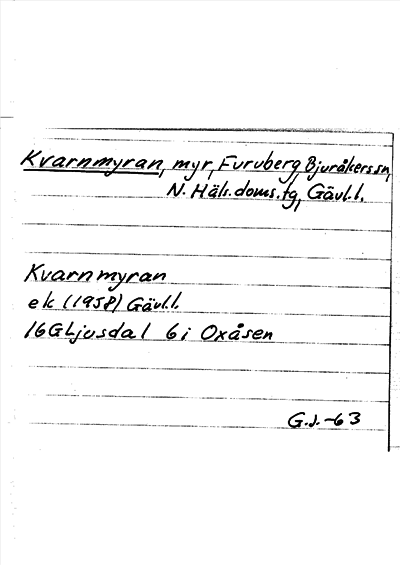 Kvarnmyran, myr, Furuberg, Bjuråkers sn,
N. Häls. doms. tg, Gävl. l.
Kvarnmyran
ek (1958) Gävl. l.
16G Ljusdal 6i Oxåsen
G.J.-63